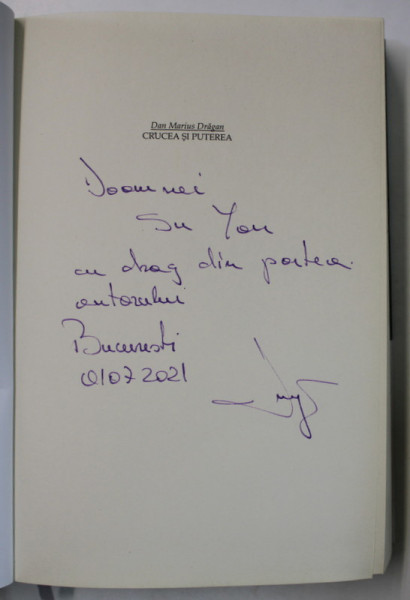 Dan Marius Drăgan
CRUCEA ȘI PUTEREA
Doamnei
Su Yan
cu drag din partea
autorului
București
01072021